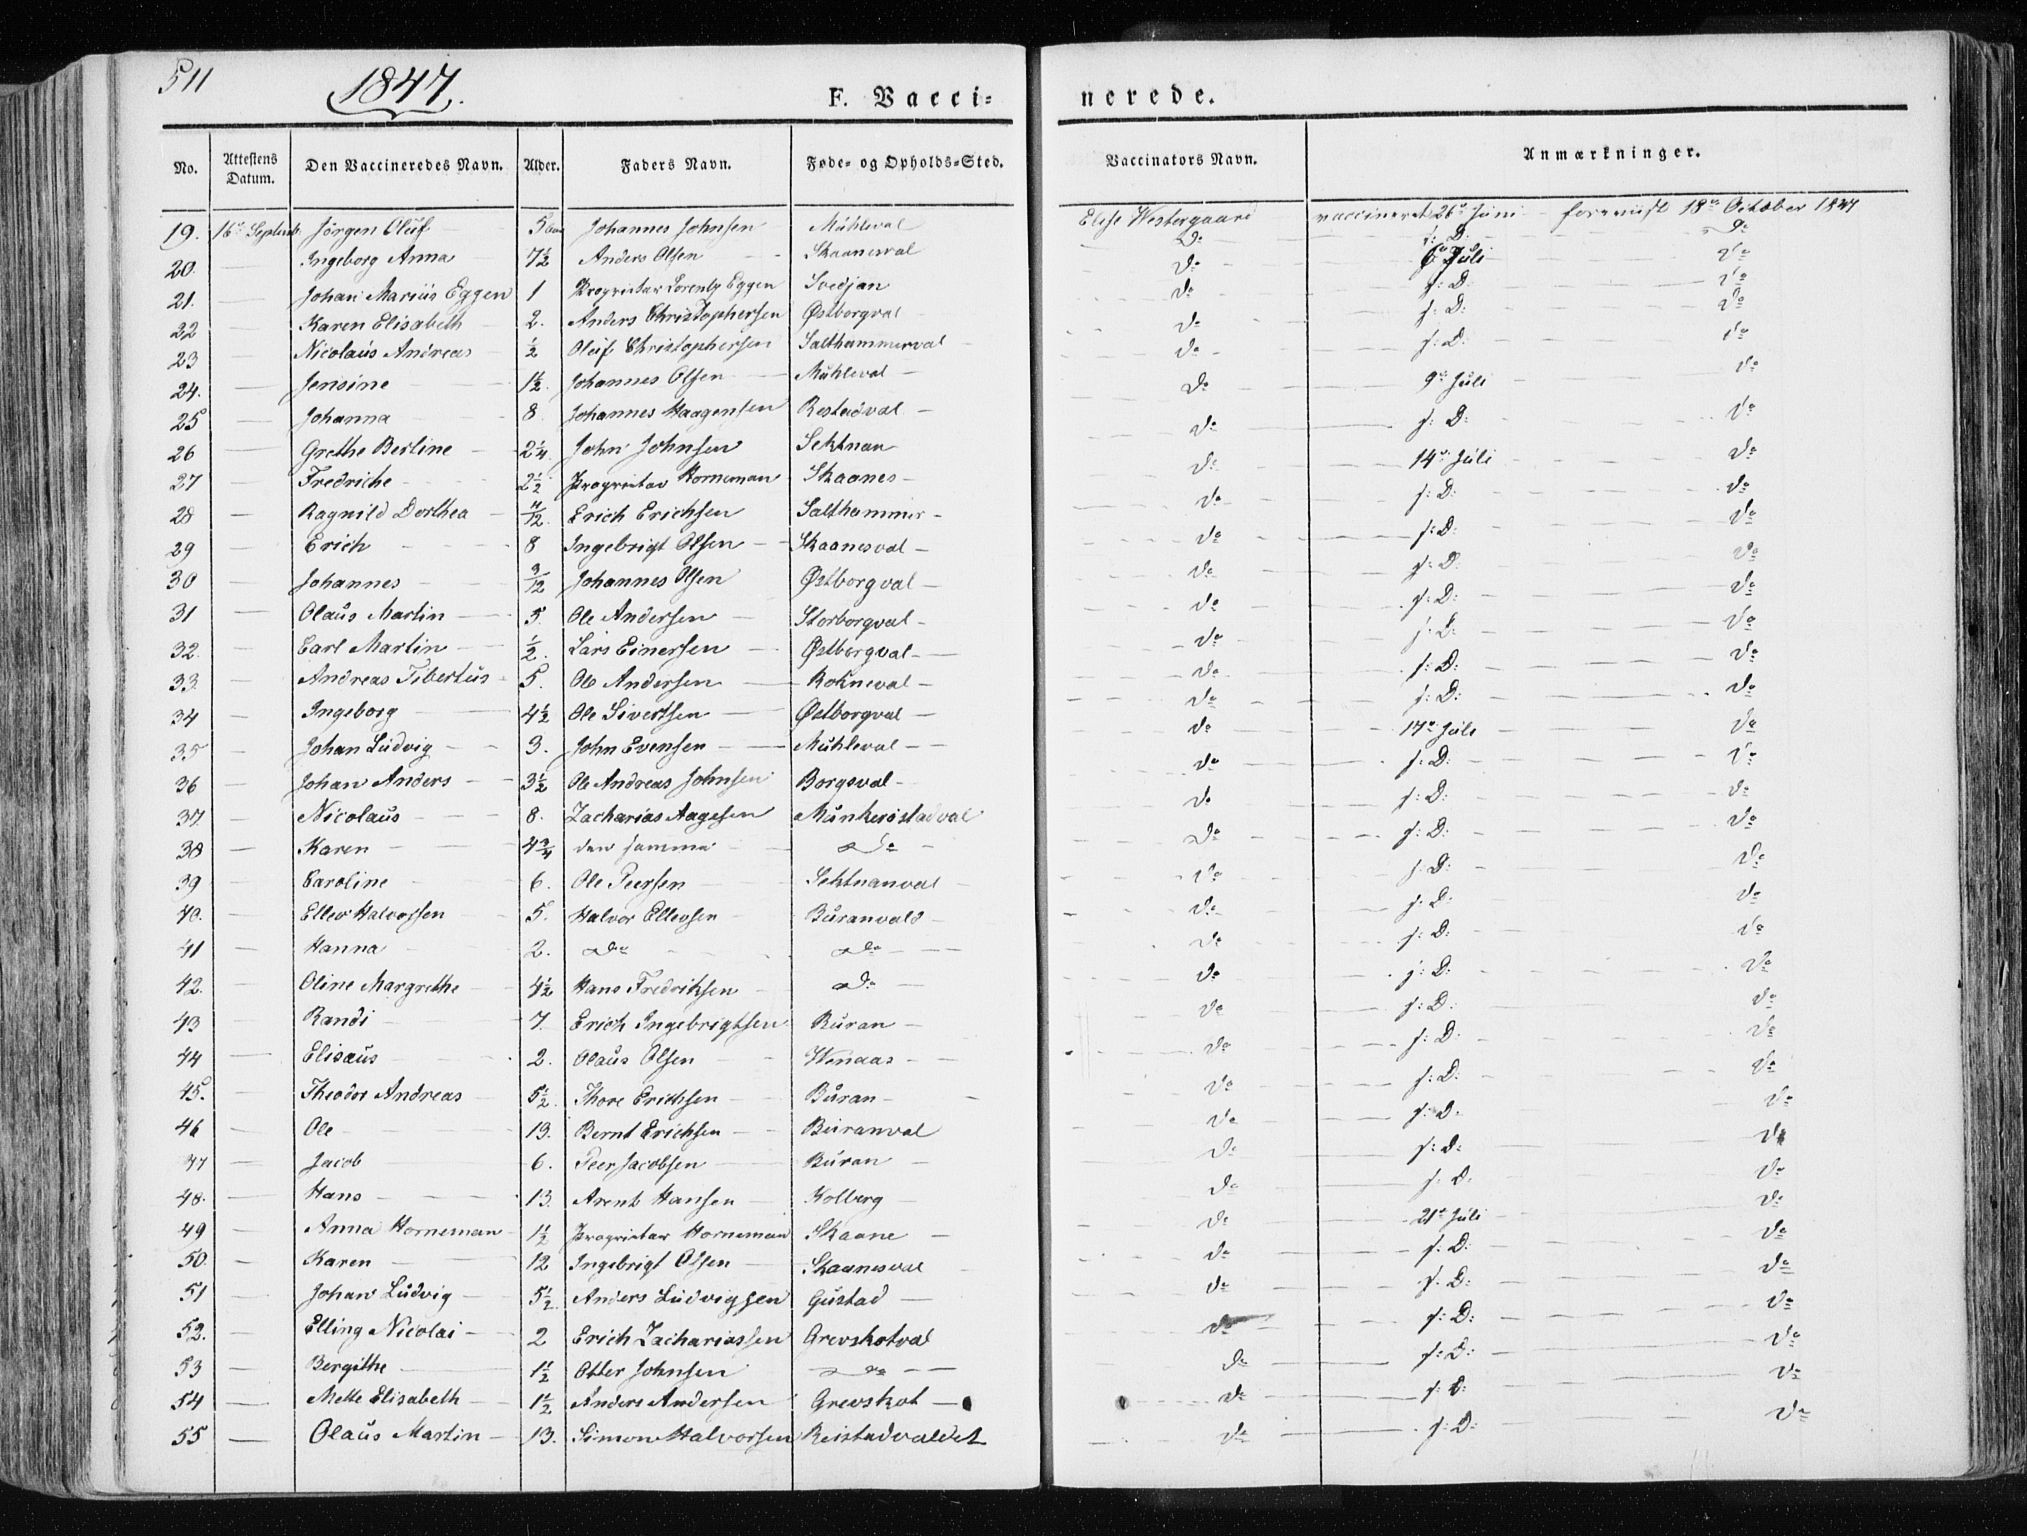 511 1847. F. Vacci= nerede.
No. Attestens Datum. Den Vaccineredes Navn. Alder. Faders Navn. Føde- og Opholds-Sted. Vaccinators Navn. Anmærkninger.
19. 16de Septemb. Jørgen Oluf 5 Johannes Johnsen Mühleval Elise Westergaard vaccineret 26de Juni foreviist 18de October 1847
20. — Ingeborg Anna 7½ Anders Olsen Skaanesval Do s: D: Do
21. — Johan Marius Eggen 1 Proprietær Lorentz Eggen Svedjan Do 6te Juli Do
22 — Karen Elisabeth 2. Anders Christophersen Østborgval Do s: D: Do
23 — Nicolaus Andreas ½ Oluf Christophersen Salthammerval Do s: D: Do
24. — Jensine 1½. Johannes Olsen Mühleval Do s: D: Do
25 — Johanna 8. Johannes Haagensen Restadval Do 9de Juli Do
26 — Grethe Berline 2¼. John Johnsen Sektnan Do s: D: Do
27 — Fredriche 2½ Proprietær Horneman Skaanes Do 14de Juli Do
28 — Ragnild Dorthea 4/12. Erich Erichsen Salthammer Do s: D: Do
29 — Erich 8 Ingebrigt Olsen Skaanesval Do s: D: Do
30 — Johannes 3/12 Johannes Olsen Østborgval Do s: D: Do
31 — Olaus Martin 5 Ole Andersen Storborgval Do s: D: Do
32. — Carl Martin ½. Lars Einersen Østborgval Do s: D: Do
33. — Andreas Tibertus 5. Ole Andersen Rokneval Do s: D: Do
34 — Ingeborg 4½ Ole Sivertsen Østborgval Do s: D: Do
35 — Johan Ludvig 3. John Evensen Mühleval Do 17de Juli Do
36 — Johan Anders 3½ Ole Andreas Johnsen Borgsval Do s: D: Do
37. — Nicolaus 8. Zacharias Aagesen Munkerøstadval Do s: D: Do
38 — Karen 4¾ den samme Do Do s: D: Do
39 — Caroline 6. Ole Peersen Sektnanval Do s: D: Do
40. — Ellev Halvorsen 5. Halvor Ellevsen Buranvald Do s: D: Do
41 — Hanna 2. Do Do Do s: D: Do
42. — Oline Margrethe 4½ Hans Fredriksen Do Do s: D: Do
43 — Randi 7 Erich Ingebrigtsen Buran Do s: D: Do
44 — Elisæus 2. Olaus Olsen Wenaas Do s: D: Do
45. — Theodor Andreas 5½. Thore Erichsen Buran Do s: D: Do
46 — Ole 13. Bernt Erichsen Buranval Do s: D: Do
47 — Jacob 6. Peer Jacobsen Buran Do s: D: Do
48. — Hans 13. Arent Hansen Kolberg Do s: D: Do
49 — Anna Horneman 1½ Proprietær Horneman Skaane Do 21de Juli Do
50. — Karen 12 Ingebrigt Olsen Skaanesval Do s: D: Do
51 — Johan Ludvig 5½. Anders Ludvigsen Gustad Do s: D: Do
52. — Elling Nicolai 2 Erich Zachariassen Grevskotval Do s: D: Do
53 — Bergithe 1½ Otter Johnsen Do Do s: D: Do
54 — Mette Elisabeth 1½ Anders Andersen Grevskot Do s: D: Do
55 — Olaus Martin 13. Simon Halvorsen Reistadvaldet Do s: D: Do